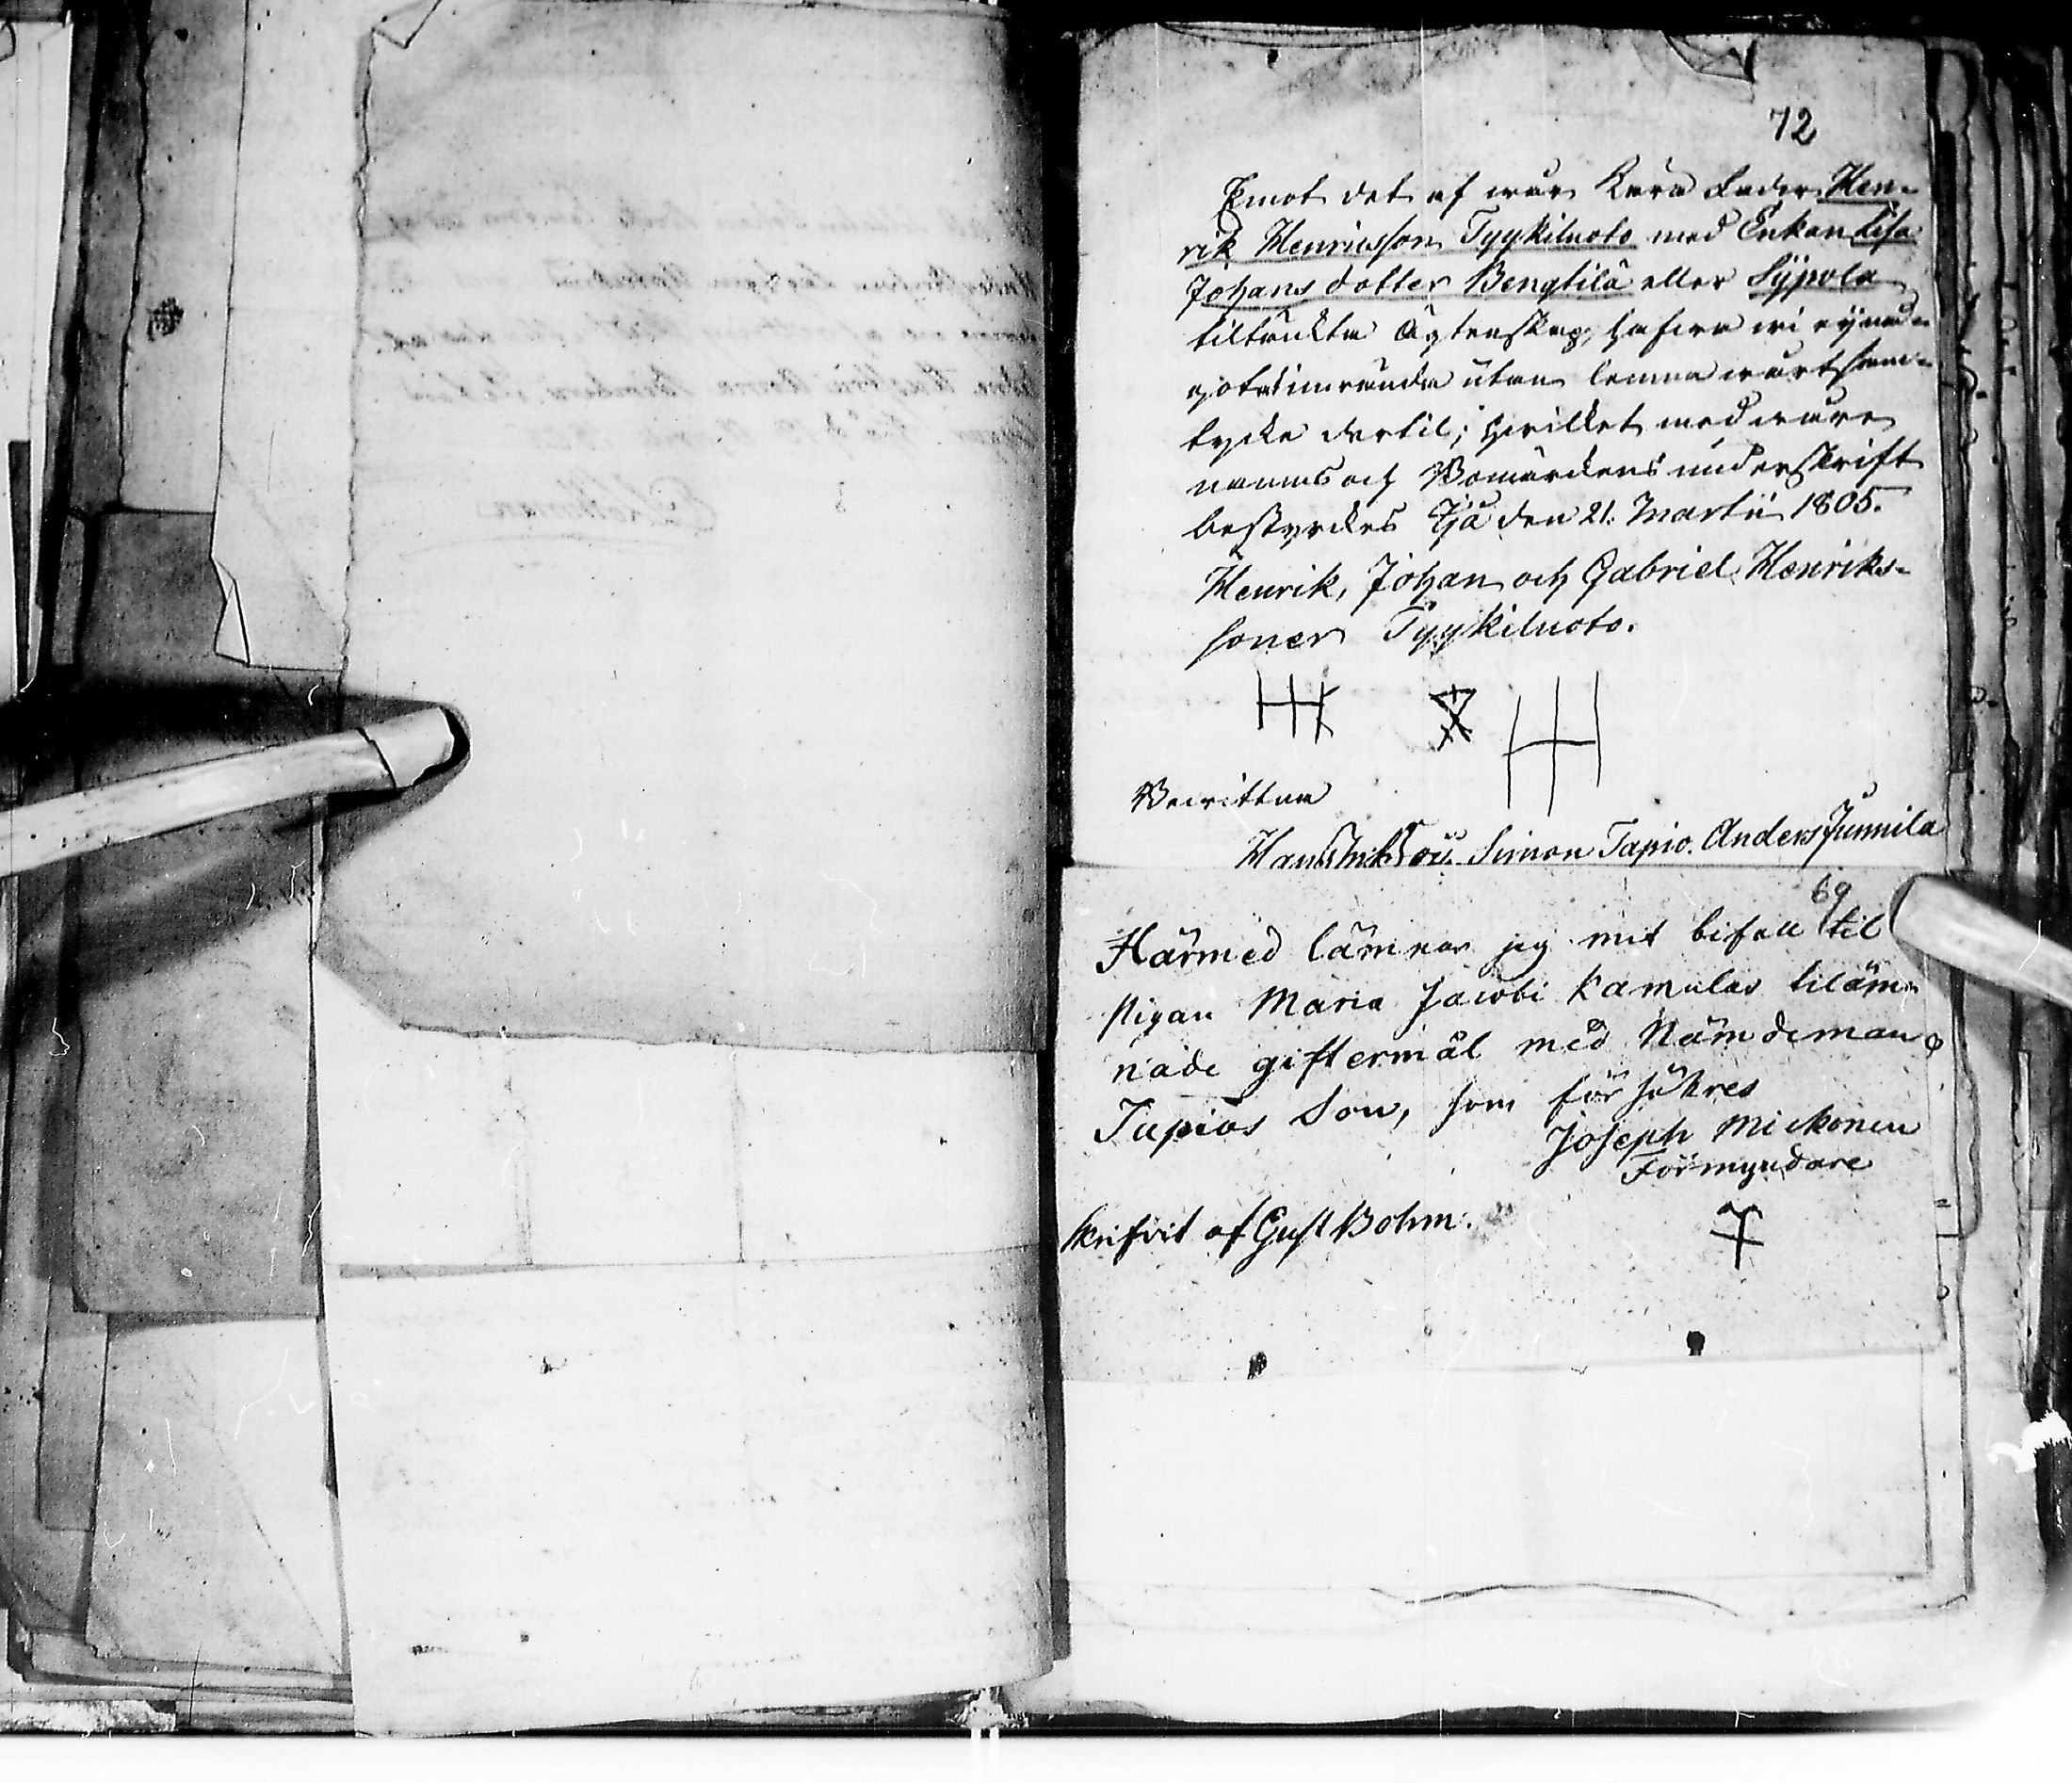 72
Emot det af wår Kära Fader Hen-
rik Henricsson Tyykiluoto med Enkan Lisa
Johans dotter Bengtilä eller Sÿpola
tiltänkta Ägtenskap, hafwa wi ej nå-
got at inwända utan lemna wårt sam-
tycke dertil; hwilket med wåre
namns och Bomärckens underskrift
bestyrckes Ijå den 21. Martii 1805.
Henrik, Johan och Gabriel Henriks-
söner Tyykiluoto.
Bewittna
Simon Tapio. Anders Junnila
69
Härmed lämnas jeg mit bifall til
pigan Maria Jacobi Kamulas tiläm-
nade giftermål med Nämdeman
Tapios Son, som försäkres
Joseph Mickonen
Förmyndare
Skrifvit af Gust Bohm.